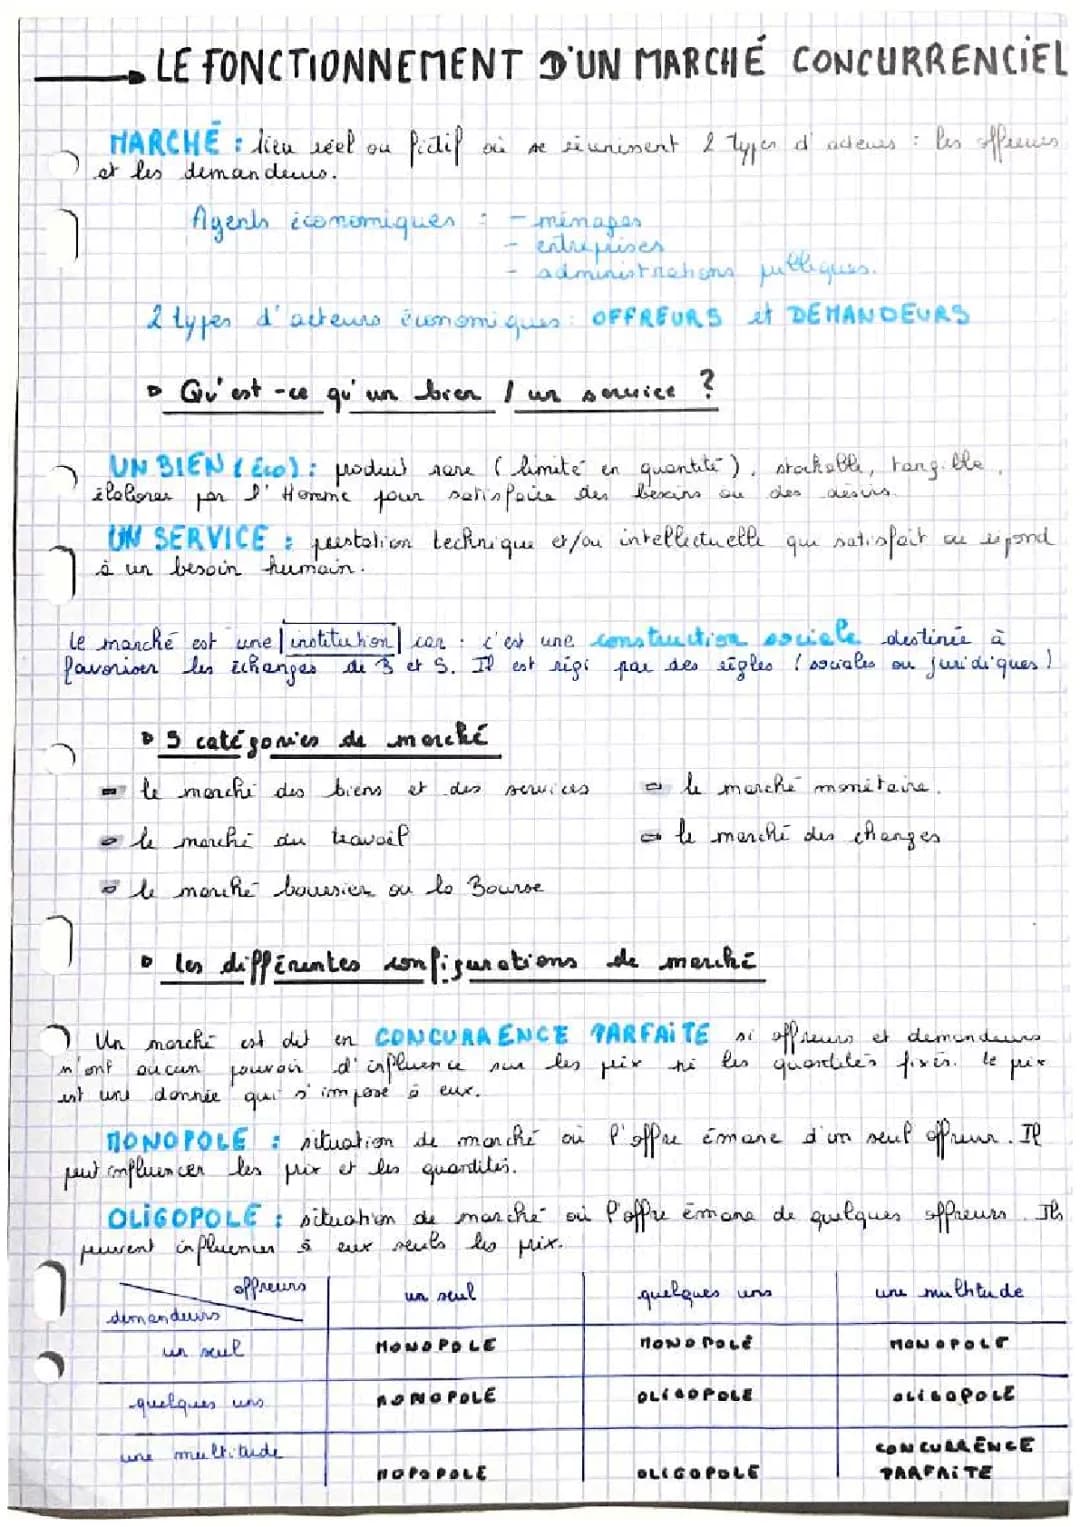 LE FONCTIONNEMENT D'UN MARCHÉ CONCURRENCIEL
MARCHÉ : lieu réel ou fictif où se réunissent 2 types d'acteurs : les offreurs
et les demandeurs.
Agents économiques : - ménages
- entreprises
- administrations publiques.
2 types d'acteurs économiques : OFFREURS et DEMANDEURS
Qu'est-ce qu'un bien / un service ?
UN BIEN (éco) : produit rare (limité en quantité), stockable, tangible,
élaborer par l'Homme pour satisfaire des besoins ou des désirs.
UN SERVICE : prestation technique et/ou intellectuelle qui satisfait ou répond
à un besoin humain.
Le marché est une institution car : c'est une construction sociale destinée à
favoriser les échanges de B et S. Il est régi par des règles (sociales ou juridiques)
5 catégories de marché
le marché des biens et des services
le marché monétaire.
le marché du travail
le marché des changes
le marché boursier ou la Bourse
les différentes configurations de marché
Un marché est dit en CONCURRENCE PARFAITE si offreurs et demandeurs
n'ont aucun pouvoir d'influence sur les prix ni les quantités fixés. Le prix
est une donnée qui s'impose à eux.
MONOPOLE : situation de marché où l'offre émane d'un seul offreur. Il
peut influencer les prix et les quantités.
OLIGOPOLE : situation de marché où l'offre émane de quelques offreurs. Ils
peuvent influencer à eux seuls les prix.
offreurs
demandeurs
un seul
quelques uns
une multitude
un seul
MONOPOLE
MONOPOLE
MONOPOLE
quelques uns
MONOPOLE
OLIGOPOLE
OLIGOPOLE
une multitude
MOPOPOLE
OLIGOPOLE
CONCURRENCE
PARFAITE